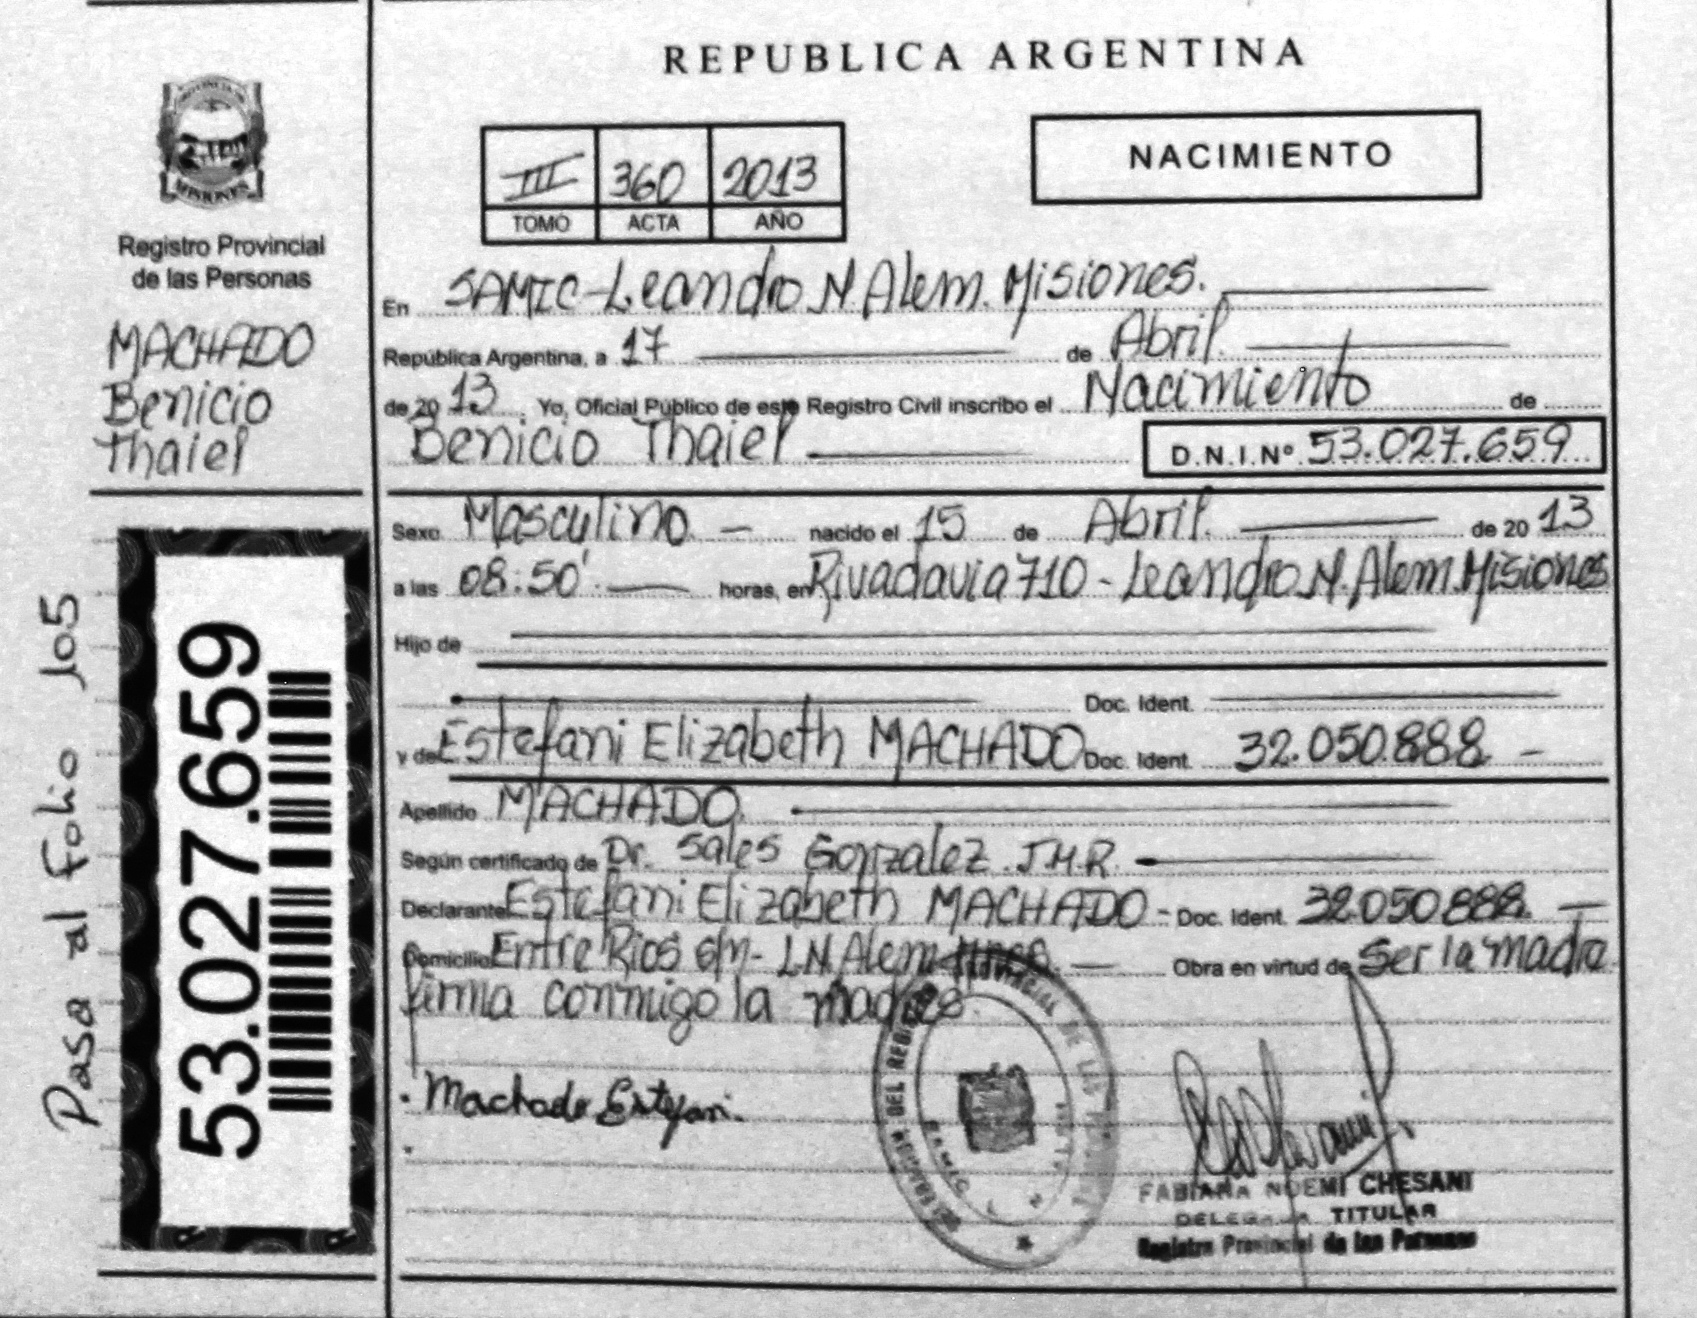 REPUBLICA ARGENTINA
PROVINCIA DE
MISIONES
Registro Provincial
de las Personas
MACHADO
Benicio
Thaiel
III 360 2013
TOMO ACTA AÑO
NACIMIENTO
En SAMIC-Leandro N. Alem. Misiones.
República Argentina, a 17 de Abril.
de 20 13. Yo, Oficial Público de este Registro Civil inscribo el Nacimiento de
Benicio Thaiel D.N.I.Nº 53.027.659
Sexo Masculino - nacido el 15 de Abril. de 20 13
a las 08:50' horas, en Rivadavia 710 - Leandro N. Alem. Misiones
Hijo de
Doc. Ident.
y de Estefani Elizabeth MACHADO Doc. Ident. 32.050.888 -
Apellido MACHADO.
Según certificado de Dr. Sales Gonzalez. J.M.R.
Declarante Estefani Elizabeth MACHADO - Doc. Ident. 32.050.888 -
Domicilio Entre Rios s/n - L.N. Alem - Obra en virtud de Ser la madre
firma conmigo la madre.
Machado Estefani.
FABIANA NOEMI CHESANI
DELEGADA TITULAR
Registro Provincial de las Personas
53.027.659
Pasa al Folio 105